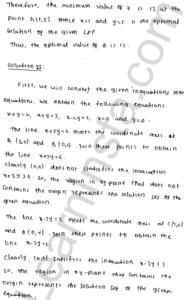 Therefore, the minimum value of Z is 15 at the
point G(1,5). Hence x=1 and y=5 is the optimal
solution of the given LPP.
Thus, the optimal value of is 15.
Solution
First, we will convert the given inequations into
equations, we obtain the following equations:
x=0 and y=0.
The line x+y=6 meets the coordinate axis at
and B(0,6). Join these points to obtain
the line x+y=6.
Clearly (0,0) does not satisfies the inequation
So, the region in xy-plane that does not
contains the origin represents the solution set of the
given equation.
The line x-y=3 meets the coordinate axis at
and Join these points to obtain
the line
Clearly, (0,0) satisfies the inequation
So, the region in xy-plane that contains the
origin represents the solution set of the given
equation.